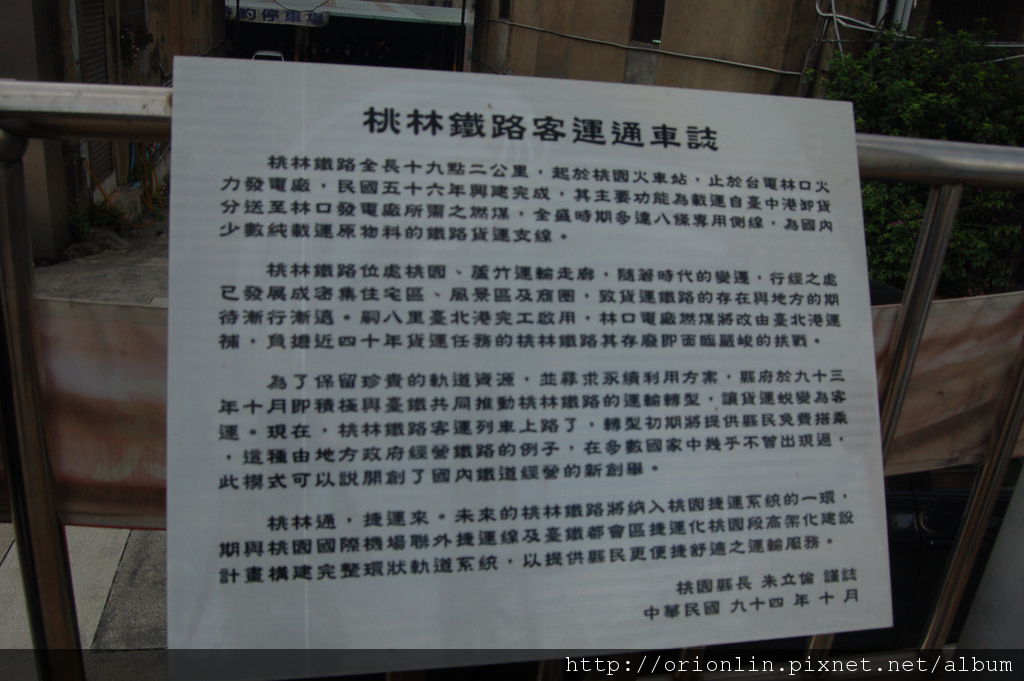 約停車場
桃林鐵路客運通車誌
桃林鐵路全長十九點二公里，起於桃園火車站，止於台電林口火
力發電廠，民國五十六年興建完成，其主要功能為載運自臺中港卸貨
分送至林口發電廠所需之燃煤，全盛時期多達八條專用側線，為國內
少數純載運原物料的鐵路貨運支線。
桃林鐵路位處桃園、蘆竹運輸走廊，隨著時代的變遷，行經之處
已發展成密集住宅區、風景區及商圈，致貨運鐵路的存在與地方的期
待漸行漸遠。嗣八里臺北港完工啟用，林口電廠燃煤將改由臺北港運
補，負擔近四十年貨運任務的桃林鐵路其存廢即面臨嚴峻的挑戰。
為了保留珍貴的軌道資源，並尋求永續利用方案，縣府於九十三
年十月即積極與臺鐵共同推動桃林鐵路的運輸轉型，讓貨運蛻變為客
運。現在，桃林鐵路客運列車上路了，轉型初期將提供縣民免費搭乘
，這種由地方政府經營鐵路的例子，在多數國家中幾乎不曾出現過，
此模式可以說開創了國內鐵道經營的新創舉。
桃林通，捷運來。未來的桃林鐵路將納入桃園捷運系統的一環，
期與桃園國際機場聯外捷運線及臺鐵都會區捷運化桃園段高架化建設
計畫構建完整環狀軌道系統，以提供縣民更便捷舒適之運輸服務。
桃園縣長 朱立倫 謹誌
中華民國 九十四 年 十 月
http://orionlin.pixnet.net/album